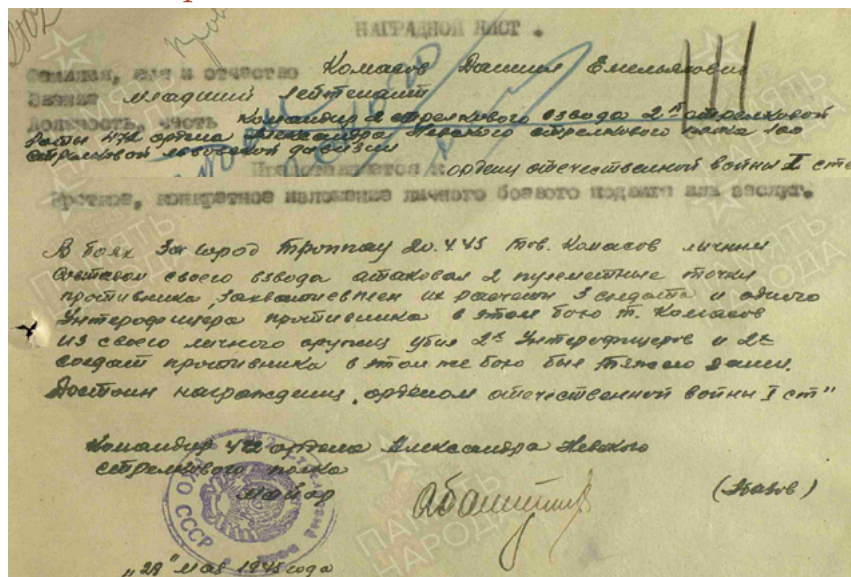 НАГРАДНОЙ ЛИСТ.
Фамилия, имя и отчество Комасов Даниил Емельянович
Звание младший лейтенант
Должность, часть Командир 2 стрелкового взвода 2й стрелковой
Роты 472 ордена Александра Невского стрелкового полка 100
Стрелковой Львовской дивизии
Представляется к ордену отечественной войны I сте
Краткое, конкретное изложение личного боевого подвига или заслуг.
В боях За город Троппау 20.4.45 тов. Комасов личным
составом своего взвода атаковал 2 пулеметные точки
противника Захватив в плен их расчеты 3 солдата и одного
Унтерофицера противника в этом бою т. Комасов
из своего личного оружия убил 2х Унтерофицеров и 2х
солдат противника в этом же бою был тяжело
Достоин награждения „орденом отечественной войны I ст"
Командир 472 ордена Александра Невского
стрелкового полка
майор
"28" мая 1945 года
СССР
ПАМЯТЬ НАРОДА